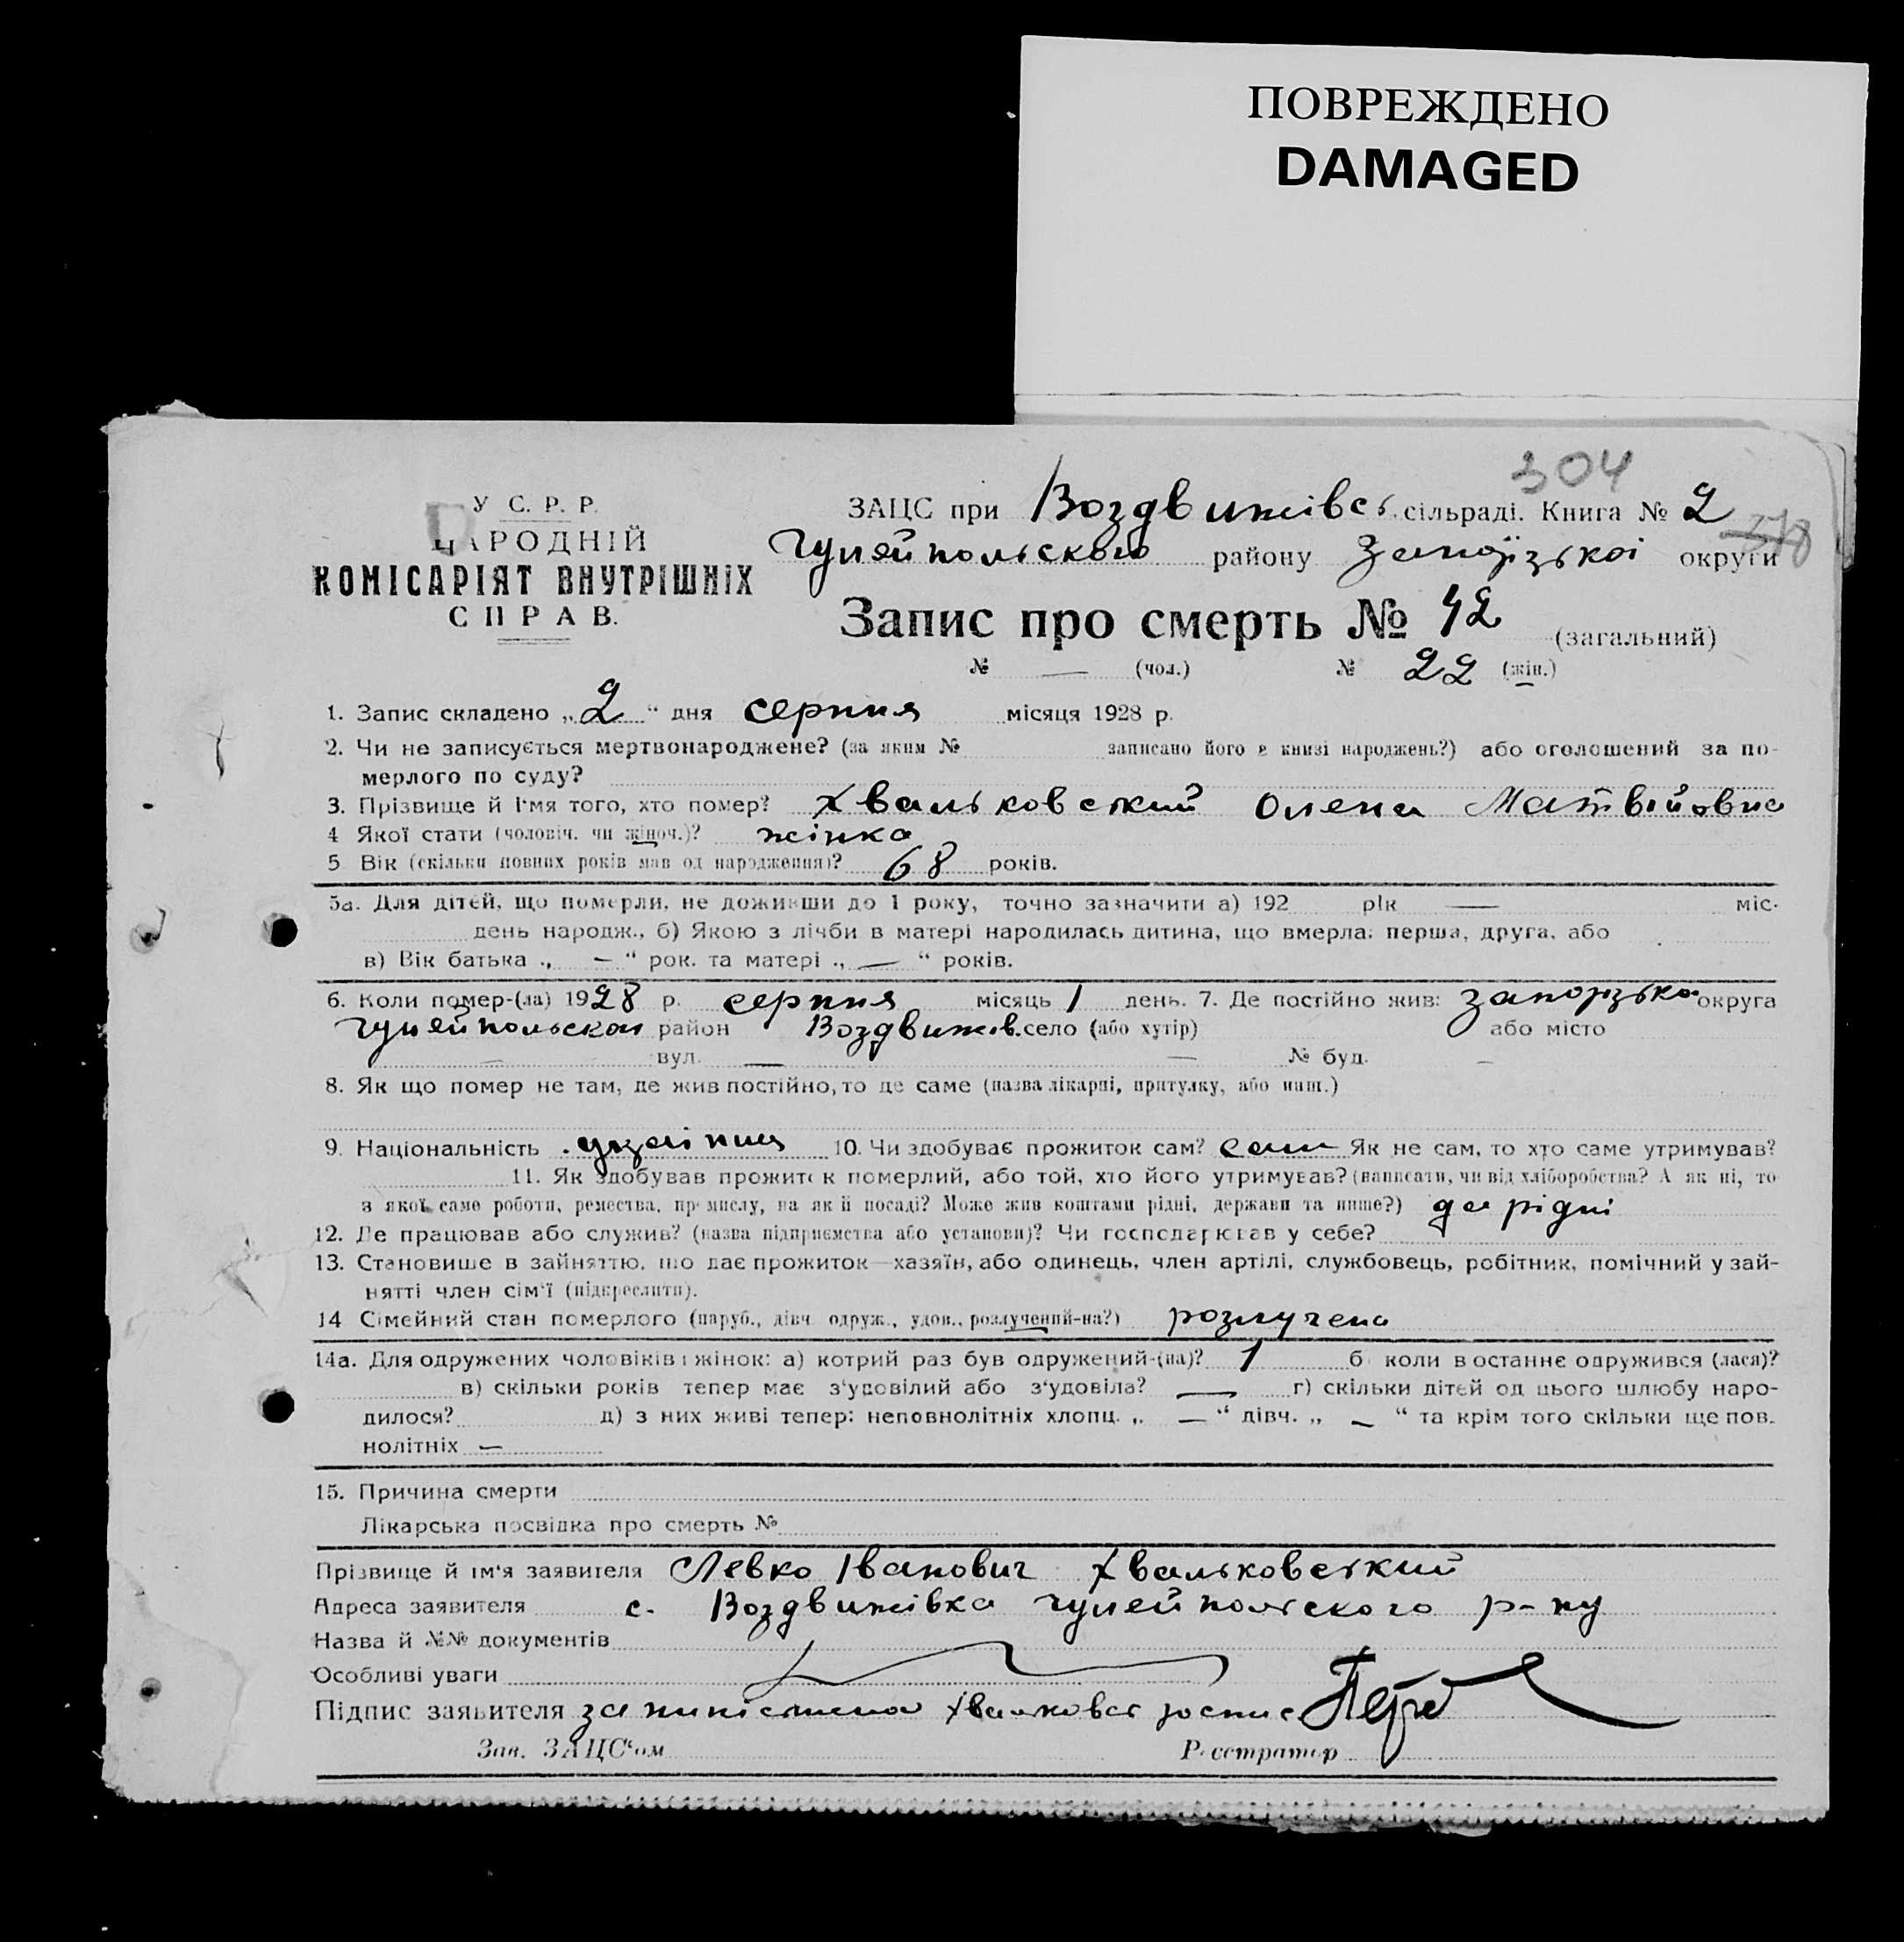 ПОВРЕЖДЕНО
DAMAGED
304
У С. Р. Р.
НАРОДНІЙ
КОМІСАРІЯТ ВНУТРІШНІХ
СПРАВ.
ЗАЦС при Воздвижівсь. сільраді. Книга № 2
378
Гуляйпольского району Запорізької округи
Запис про смерть № 42 (загальний)
№ — (чол.) № 22 (жін.)
1. Запис складено „2“ дня серпня місяця 1928 р.
2. Чи не записується мертвонароджене? (за яким № записано його в книзі народжень?) або оголошений за по-
мерлого по суду?
3. Прізвище й ім'я того, хто помер? Хвальковський Олена Матвійовна
4 Якої статі (чоловіч. чи жіноч.)? жінка
5 Вік (скільки повних років мав од народження)? 68 років.
5а. Для дітей, що померли, не доживши до 1 року, точно зазначити а) 192 рік — міс.
день народж., б) Якою з лічби в матері народилась дитина, що вмерла: перша, друга, або
в) Вік батька „ — “ рок. та матері „ — “ років.
6. Коли помер-(ла) 1928 р. серпня місяць 1 день. 7. Де постійно жив: Запорізька округа
Гуляйпольскои район Воздвижів. село (або хутір) або місто
— вул. — — № буд. —
8. Як що помер не там, де жив постійно, то де саме (назва лікарні, притулку, або инш.)
9. Національність українка 10. Чи здобуває прожиток сам? сам Як не сам, то хто саме утримував?
11. Як здобував прожиток померлий, або той, хто його утримував? (написати, чи від хліборобства? А як ні, то
з якої саме роботи, ремества, промислу, на якій посаді? Може жив коштами рідні, держави та инше?) да рідні
12. Де працював або служив? (назва підприємства або установи)? Чи господарював у себе?
13. Становище в зайняттю, що дає прожиток—хазяїн, або одинець, член артілі, службовець, робітник, помічний у зай-
нятті член сім'ї (підкреслити).
14 Сімейний стан померлого (паруб., дівч. одруж., удов., розлучений-на?) розлучена
14а. Для одружених чоловіків і жінок: а) котрий раз був одружений-(на)? 1 б) коли востаннє одружився (лася)?
в) скільки років тепер має з'удовілий або з'удовіла? — г) скільки дітей од цього шлюбу наро-
дилося? д) з них живі тепер: неповнолітніх хлопц. „ — “ дівч. „ — “ та крім того скільки ще пов.
нолітніх —
15. Причина смерти
Лікарська посвідка про смерть №
Прізвище й ім'я заявителя Левко Іванович Хвальковський
Адреса заявителя с. Воздвижівка Гуляйпольского р-ну
Назва й №№ документів
Особливі уваги
Підпис заявителя за Хвальковсь
Зав. ЗАЦС'ом Реєстратор